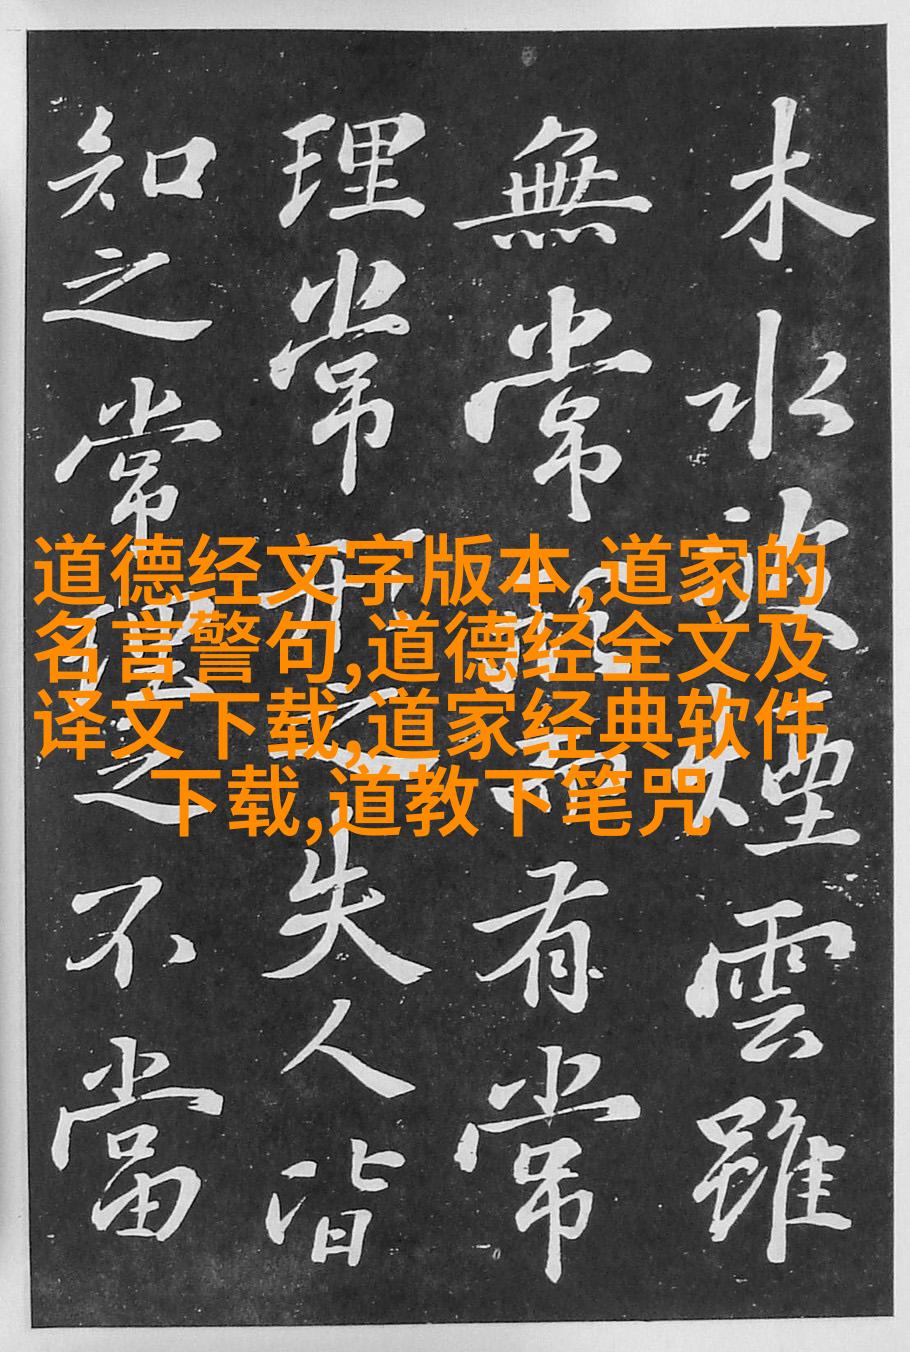 木水波煙雲雖
無常有常
理常形之失人皆
知之常理之不當
道德经文字版本,道家的
名言警句,道德经全文及
译文下载,道家经典软件
下载,道教下笔咒